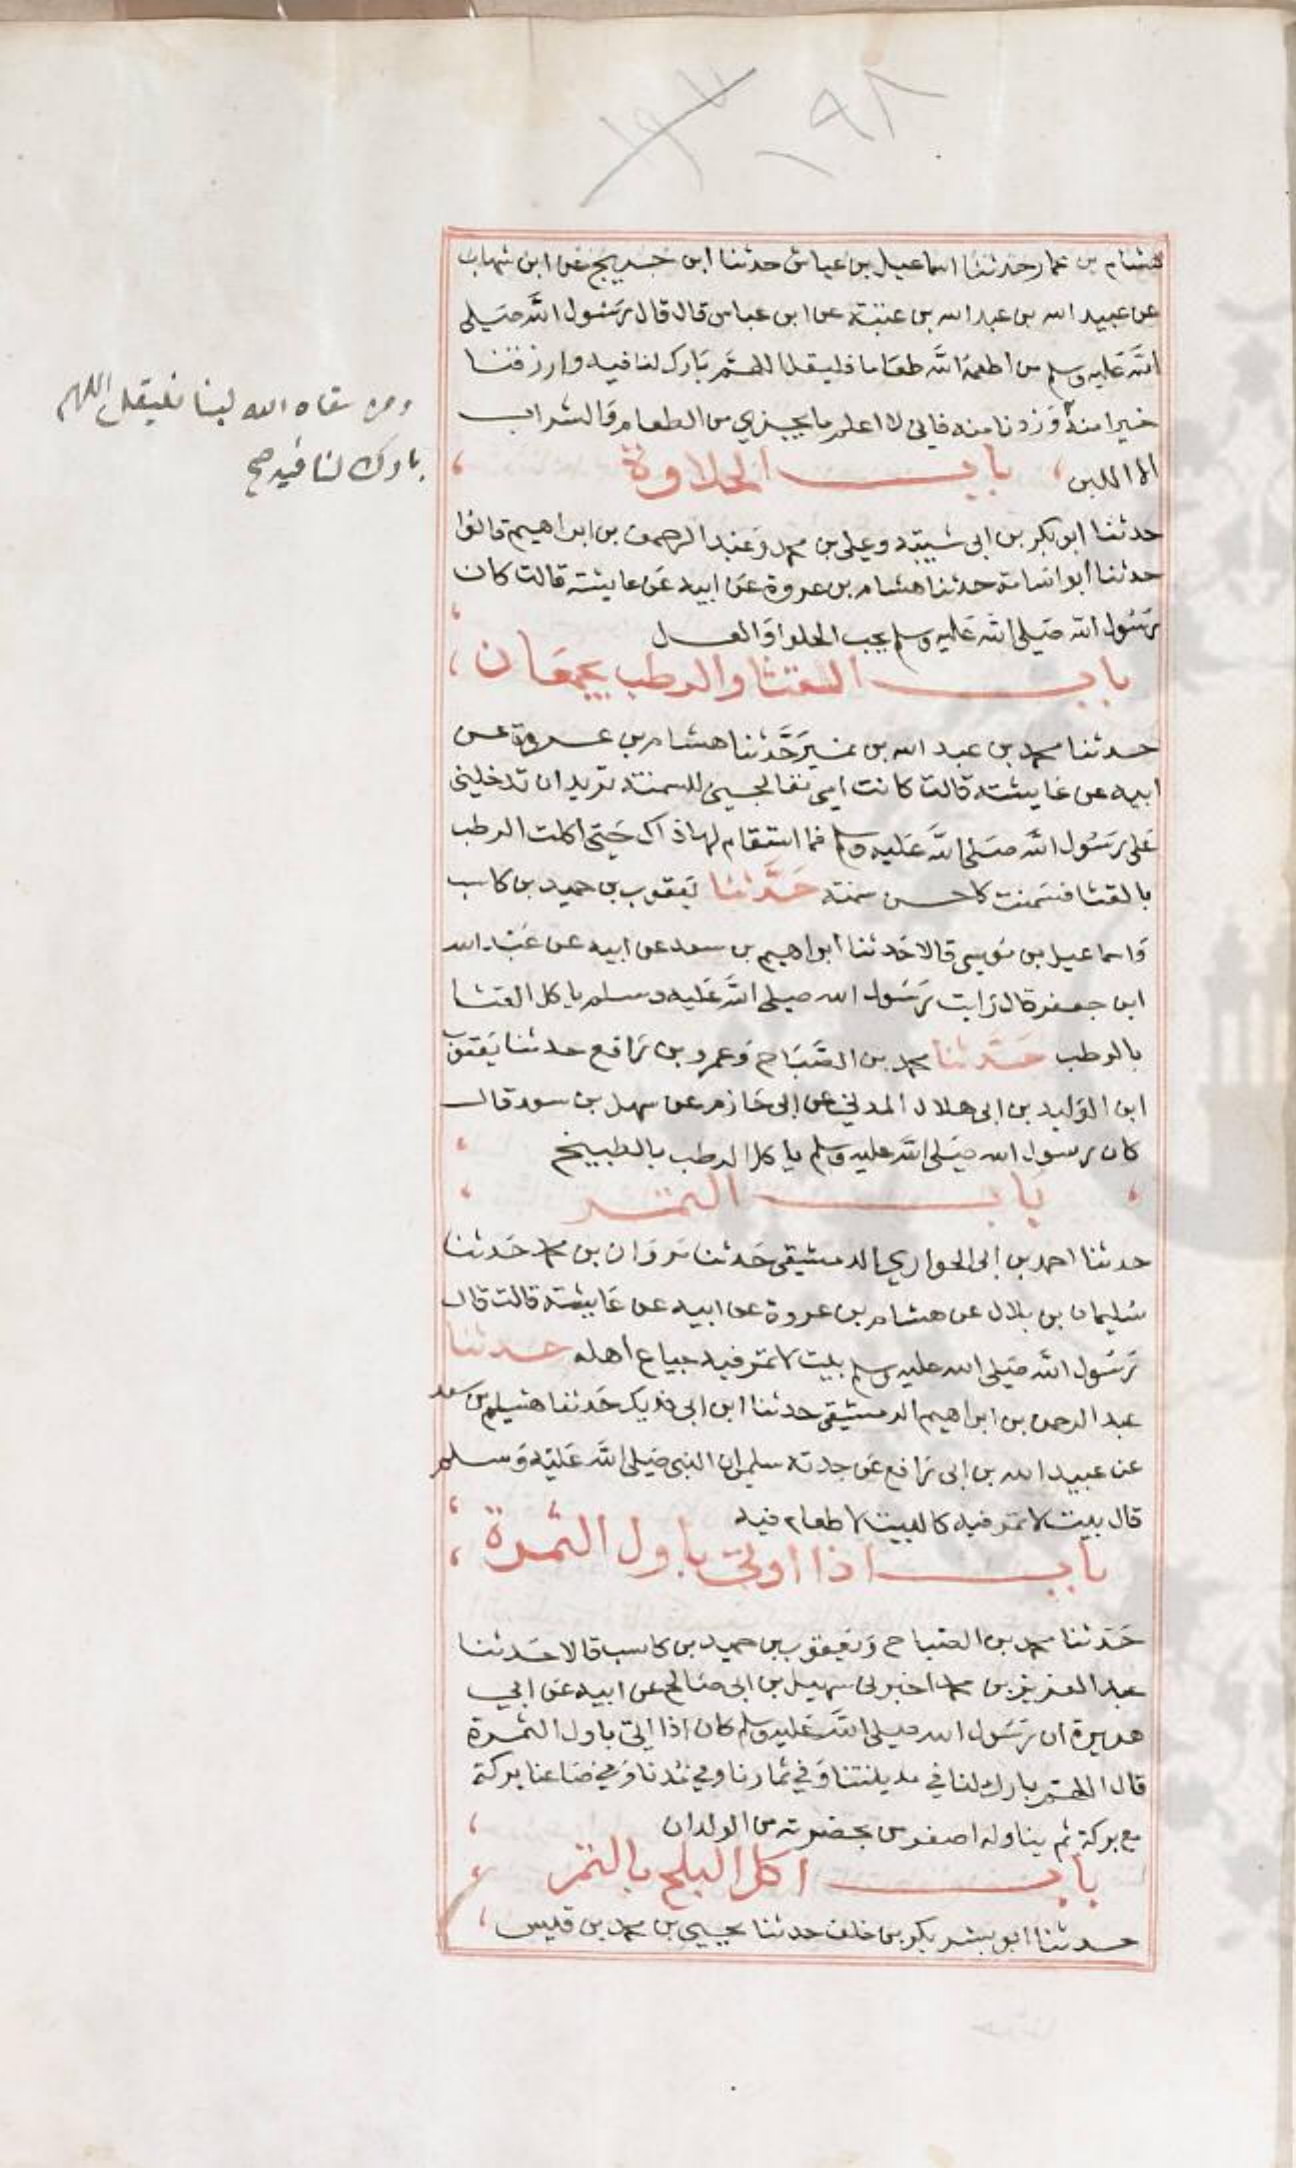 ١٩٧ ١٩٨
هشام بن عمار حدثنا اسماعيل بن عياش حدثنا ابن جريج عن ابن شهاب
عن عبيد الله بن عبد الله بن عتبة عن ابن عباس قال قال رسول الله صلى
الله عليه وسلم من اطعمه الله طعاما فليقل اللهم بارك لنا فيه وارزقنا
خيرا منه وزدنا منه فاني لا اعلم ما يجزي من الطعام والشراب
الا اللبن باب الحلاوة
ومن سقاه الله لبنا فليقل اللهم
بارك لنا فيه صح
حدثنا ابو بكر بن ابي شيبه وعلي بن محمد وعبد الرحمن بن ابراهيم قالوا
حدثنا ابو اسامة حدثنا هشام بن عروة عن ابيه عن عايشة قالت كان
رسول الله صلى الله عليه وسلم يحب الحلوا والعسل
باب القثا والرطب يجمعان
حدثنا محمد بن عبد الله بن نمير حدثنا هشام بن عروة عن
ابيه عن عايشة قالت كانت امي تعالجني للسمنة تريد ان تدخلني
على رسول الله صلى الله عليه وسلم فما استقام لها ذاك حتى اكلت الرطب
بالقثا فسمنت كاحسن سمنة حدثنا يعقوب بن حميد بن كاسب
واسماعيل بن موسى قالا حدثنا ابراهيم بن سعد عن ابيه عن عبد الله
ابن جعفر قال رايت رسول الله صلى الله عليه وسلم ياكل القثا
بالرطب حدثنا محمد بن الصباح وعمرو بن رافع حدثنا يعقوب
ابن الوليد بن ابي هلال المدني عن ابي حازم عن سهل بن سعد قال
كان رسول الله صلى الله عليه وسلم ياكل الرطب بالطبيخ
باب التمر
حدثنا احمد بن ابي الحواري الدمشقي حدثنا مروان بن محمد حدثنا
سليمان بن بلال عن هشام بن عروة عن ابيه عن عايشة قالت قال
رسول الله صلى الله عليه وسلم بيت لا تمر فيه جياع اهله حدثنا
عبد الرحمن بن ابراهيم الدمشقي حدثنا ابن ابي فديك حدثنا هشام بن سعد
عن عبيد الله بن ابي رافع عن جدته سلمى ان النبي صلى الله عليه وسلم
قال بيت لا تمر فيه كالبيت لا طعام فيه
باب اذا اوتي باول الثمرة
حدثنا محمد بن الصباح ويعقوب بن حميد بن كاسب قالا حدثنا
عبد العزيز بن محمد اخبرني سهيل بن ابي صالح عن ابيه عن ابي
هريرة ان رسول الله صلى الله عليه وسلم كان اذا اتي باول الثمرة
قال اللهم بارك لنا في مدينتنا وفي ثمارنا وفي مدنا وفي صاعنا بركة
مع بركة ثم يناوله اصغر من بحضرته من الولدان
باب اكل البلح بالتمر
حدثنا ابو بشر بكر بن خلف حدثنا يحيى بن محمد بن قيس